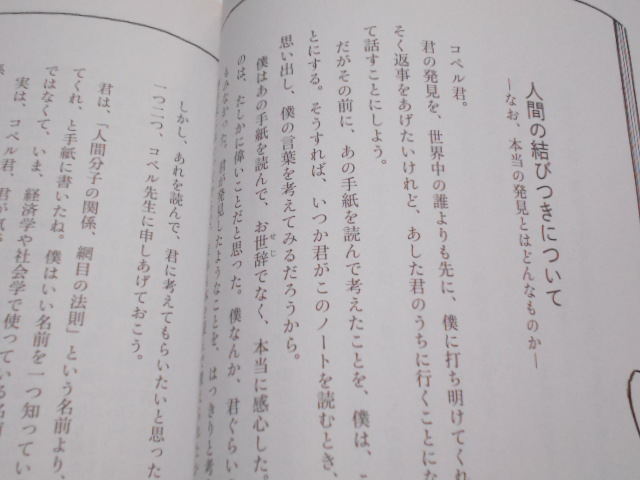 人間の結びつきについて
―なお、本当の発見とはどんなものか―
コペル君。
君の発見を、世界中の誰よりも先に、僕に打ち明けてくれ
そく返事をあげたいけれど、あした君のうちに行くことにな
て話すことにしよう。
だがその前に、あの手紙を読んで考えたことを、僕は、こ
とにする。そうすれば、いつか君がこのノートを読むとき、
思い出し、僕の言葉を考えてみるだろうから。
僕はあの手紙を読んで、お世辞でなく、本当に感心した。
せじ
のは、たしかに偉いことだと思った。僕なんか、君ぐらい
君が発見したようなことを、はっきりと考
しかし、あれを読んで、君に考えてもらいたいと思った
一つ二つ、コペル先生に申しあげておこう。
君は、「人間分子の関係、網目の法則」という名前より、
てくれ、と手紙に書いたね。僕はいい名前を一つ知ってい
ではなくて、いま、経済学や社会学で使っている名前
実は、コペル君、君が気
係